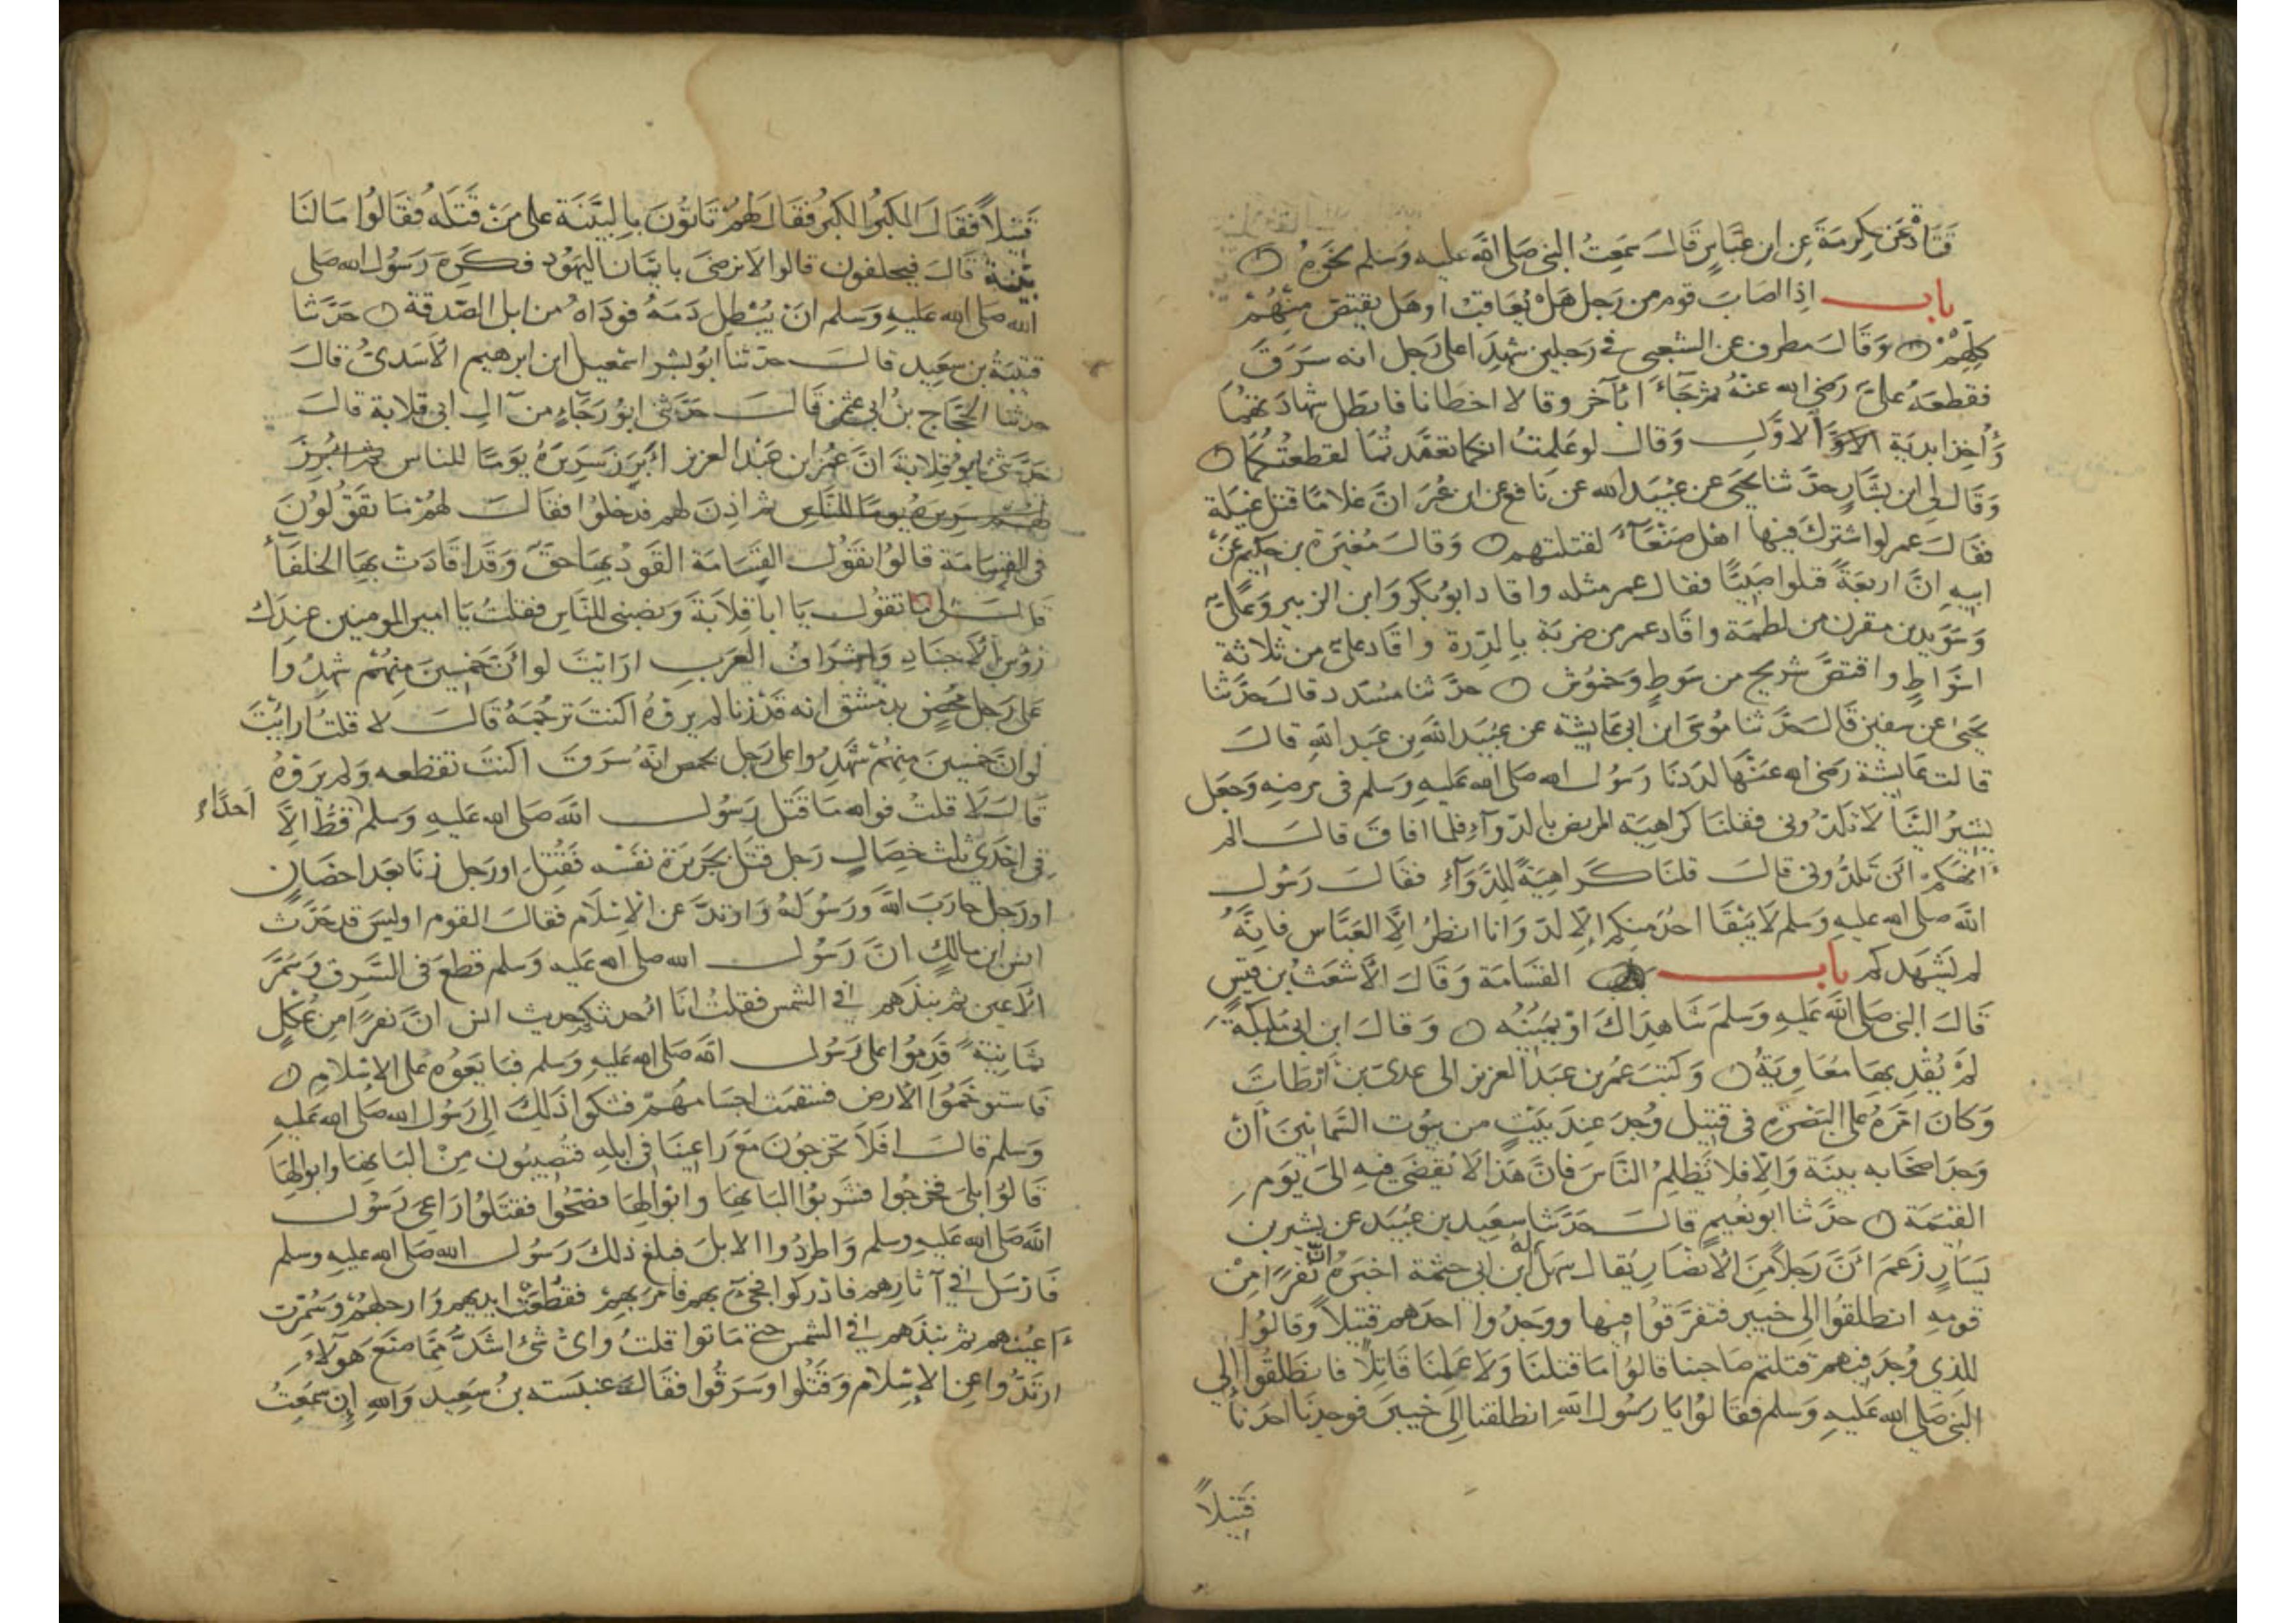 قتادة عن عكرمة عن ابن عباس قال سمعت النبي صلى الله عليه وسلم نحوه
باب اذا اصاب قوم من رجل هل يعاقب او هل يقتص منهم
كلهم وقال مطرف عن الشعبي في رجلين شهدا على رجل انه سرق
فقطعه علي رضي الله عنه ثم جاءا بآخر وقالا اخطانا فابطل شهادتهما
وأخذا بدية الاو الاول وقال لو علمت انكما تعمدتما لقطعتكما
وقال لي ابن بشار حدثنا يحيى عن عبيد الله عن نافع عن ابن عمر ان غلاما قتل غيلة
فقال عمر لو اشترك فيها اهل صنعاء لقتلتهم وقال مغيرة بن حكيم عن
ابيه ان اربعة قتلوا صبيا فقال عمر مثله واقاد ابو بكر وابن الزبير وعلي
وسويد بن مقرن من لطمة واقاد عمر من ضربة بالدرة واقاد علي من ثلاثة
اسواط واقتص شريح من سوط وخموش حدثنا مسدد قال حدثنا
يحيى عن سفين قال حدثنا موسى ابن ابي عايشة عن عبيد الله بن عبد الله قال
قالت عايشة رضي الله عنها لددنا رسول الله صلى الله عليه وسلم في مرضه وجعل
يشير الينا لا تلدوني فقلنا كراهية المريض بالدواء فلما افاق قال الم
انهكم ان تلدوني قال قلنا كراهية للدواء فقال رسول
الله صلى الله عليه وسلم لا يبقا احد منكم الا لد وانا انظر الا العباس فانه
لم يشهدكم باب القسامة وقال الاشعث بن قيس
قال النبي صلى الله عليه وسلم شاهداك او يمينه وقال ابن ابي مليكة
لم يقد بها معاوية وكتب عمر بن عبد العزيز الى عدي بن ارطات
وكان امره على البصرة في قتيل وجد عند بيت من بيوت السمانين ان
وجد اصحابه بينة والا فلا تظلم الناس فان هذا لا يقضى فيه الى يوم
القيمة حدثنا ابو نعيم قال حدثنا سعيد بن عبيد عن بشير بن
يسار زعم ان رجلا من الانصار يقال له سهل ابن ابي حثمة اخبره ان نفرا من
قومه انطلقوا الى خيبر فتفرقوا فيها ووجدوا احدهم قتيلا وقالوا
للذي وجد فيهم قتلتم صاحبنا قالوا ما قتلنا ولا علمنا قاتلا فانطلقوا الى
النبي صلى الله عليه وسلم فقالوا يا رسول الله انطلقنا الى خيبر فوجدنا احدنا
قتيلا
قتيلا فقال الكبر الكبر فقال لهم تاتون بالبينة على من قتله فقالوا ما لنا
بينة قال فيحلفون قالوا لا نرضى بايمان اليهود فكره رسول الله صلى
الله صلى الله عليه وسلم ان يبطل دمه فوداه من ابل الصدقة حدثنا
قتيبة بن سعيد قال حدثنا ابو بشر اسمعيل ابن ابرهيم الاسدي قال
حدثنا الحجاج بن ابي عثمن قال حدثني ابو رجاء من آل ابي قلابة قال
حدثني ابو قلابة ان عمر ابن عبد العزيز ابرز سريره يوما للناس ثم ابرز
لهم سريره يوما للناس ثم اذن لهم فدخلوا فقال لهم ما تقولون
في القسامة قالوا نقول القسامة القود بها حق وقد اقادت بها الخلفاء
قال لي ما تقول يا ابا قلابة ونصبني للناس فقلت يا امير المومنين عندك
رؤس الاجناد واشراف العرب ارايت لو ان خمسين منهم شهدوا
على رجل محصن بدمشق انه قد زنا لم يروه اكنت ترجمه قال لا قلت ارايت
لو ان خمسين منهم شهدوا على رجل بحمص انه سرق اكنت تقطعه ولم يروه
قال لا قلت فوالله ما قتل رسول الله صلى الله عليه وسلم قط الا احدا
في احدى ثلث خصال رجل قتل بجريرة نفسه فقتل او رجل زنا بعد احصان
او رجل حارب الله ورسوله وارتد عن الاسلام فقال القوم اوليس قد حدث
انس ابن مالك ان رسول الله صلى الله عليه وسلم قطع في السرق وسمر
الاعين ثم نبذهم في الشمس فقلت انا احدثكم حديث انس ان نفرا من عكل
ثمانية قدموا على رسول الله صلى الله عليه وسلم فبايعوه على الاسلام
فاستوخموا الارض فسقمت اجسامهم فشكوا ذلك الى رسول الله صلى الله عليه
وسلم قال افلا تخرجون مع راعينا في ابله فتصيبون من البانها وابوالها
قالوا بلى فخرجوا فشربوا البانها وابوالها فصحوا فقتلوا راعي رسول
الله صلى الله عليه وسلم واطردوا الابل فبلغ ذلك رسول الله صلى الله عليه وسلم
فارسل في آثارهم فادركوا فجيء بهم فامر بهم فقطعت ايديهم وارجلهم وسمرت
اعينهم ثم نبذهم في الشمس حتى ماتوا قلت واي شئ اشد مما صنع هولاء
ارتدوا عن الاسلام وقتلوا وسرقوا فقال عنبسة بن سعيد والله ان سمعت